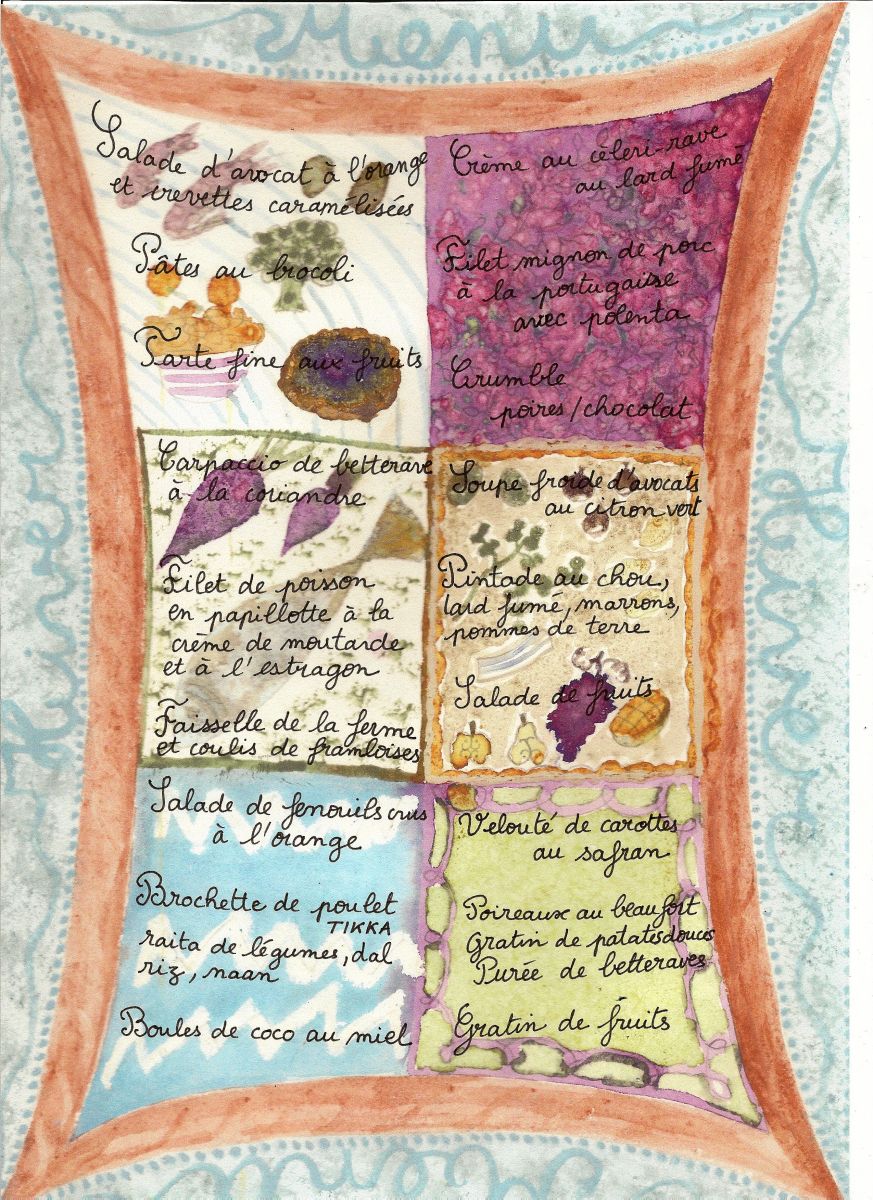 Menu
Salade d'avocat à l'orange
et crevettes caramélisées
Pâtes au brocoli
Tarte fine aux fruits
Crème au cèleri-rave
au lard fumé
Filet mignon de porc
à la portugaise
avec polenta
Crumble
poires/chocolat
Carpaccio de betterave
à la coriandre
Filet de poisson
en papillotte à la
crème de moutarde
et à l'estragon
Faisselle de la ferme
et coulis de framboises
Soupe froide d'avocats
au citron vert
Pintade au chou,
lard fumé, marrons,
pommes de terre
Salade de fruits
Salade de fenouils crus
à l'orange
Brochette de poulet
TIKKA
raita de légumes, dal
riz, naan
Boules de coco au miel
Velouté de carottes
au safran
Poireaux au beaufort
Gratin de patates douces
Purée de betteraves
Gratin de fruits